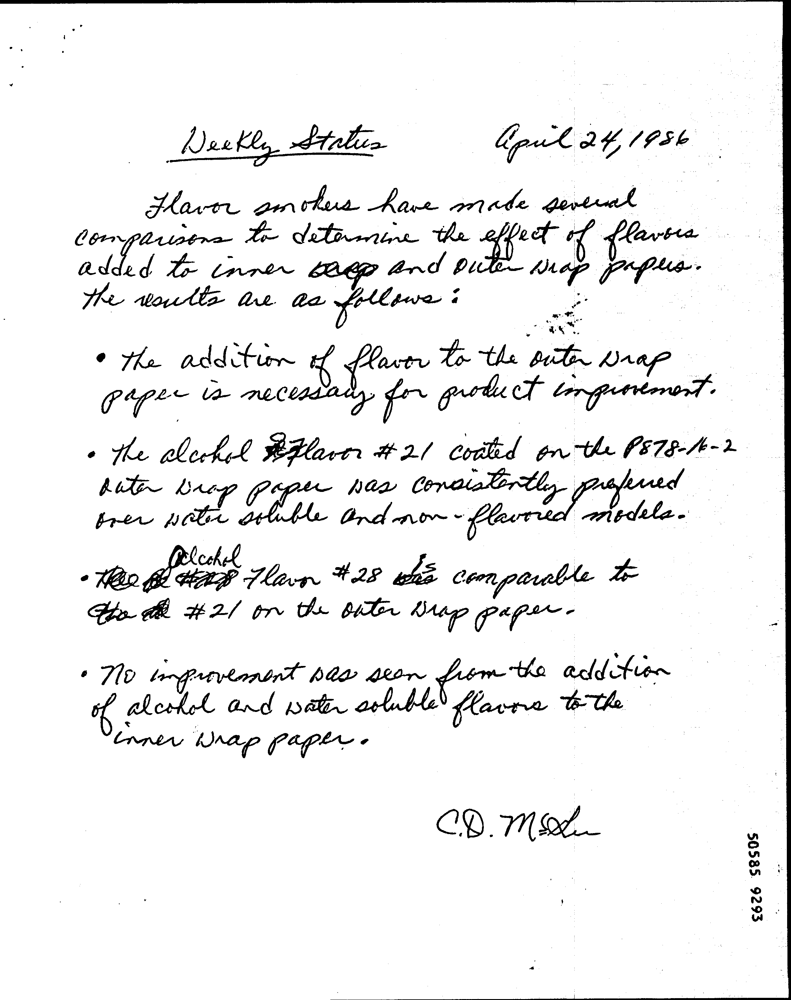 Weekly Status April 24, 1986
Flavor smokers have made several
comparisons to determine the effect of flavors
added to inner and outer wrap papers.
The results are as follows:
• The addition of flavor to the outer wrap
paper is necessary for product improvement.
• The alcohol Flavor #21 coated on the P878-16-2
outer wrap paper was consistently preferred
over water soluble and non-flavored models.
• Alcohol Flavor #28 is comparable to
#21 on the outer wrap paper.
• No improvement was seen from the addition
of alcohol and water soluble flavors to the
inner wrap paper.
C.D.
50585 9293